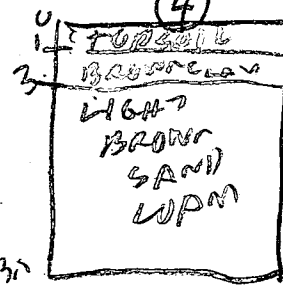 4
0
1 TOPSOIL
BROWN CLAY
3
LIGHT
BROWN
SAND
LOAM